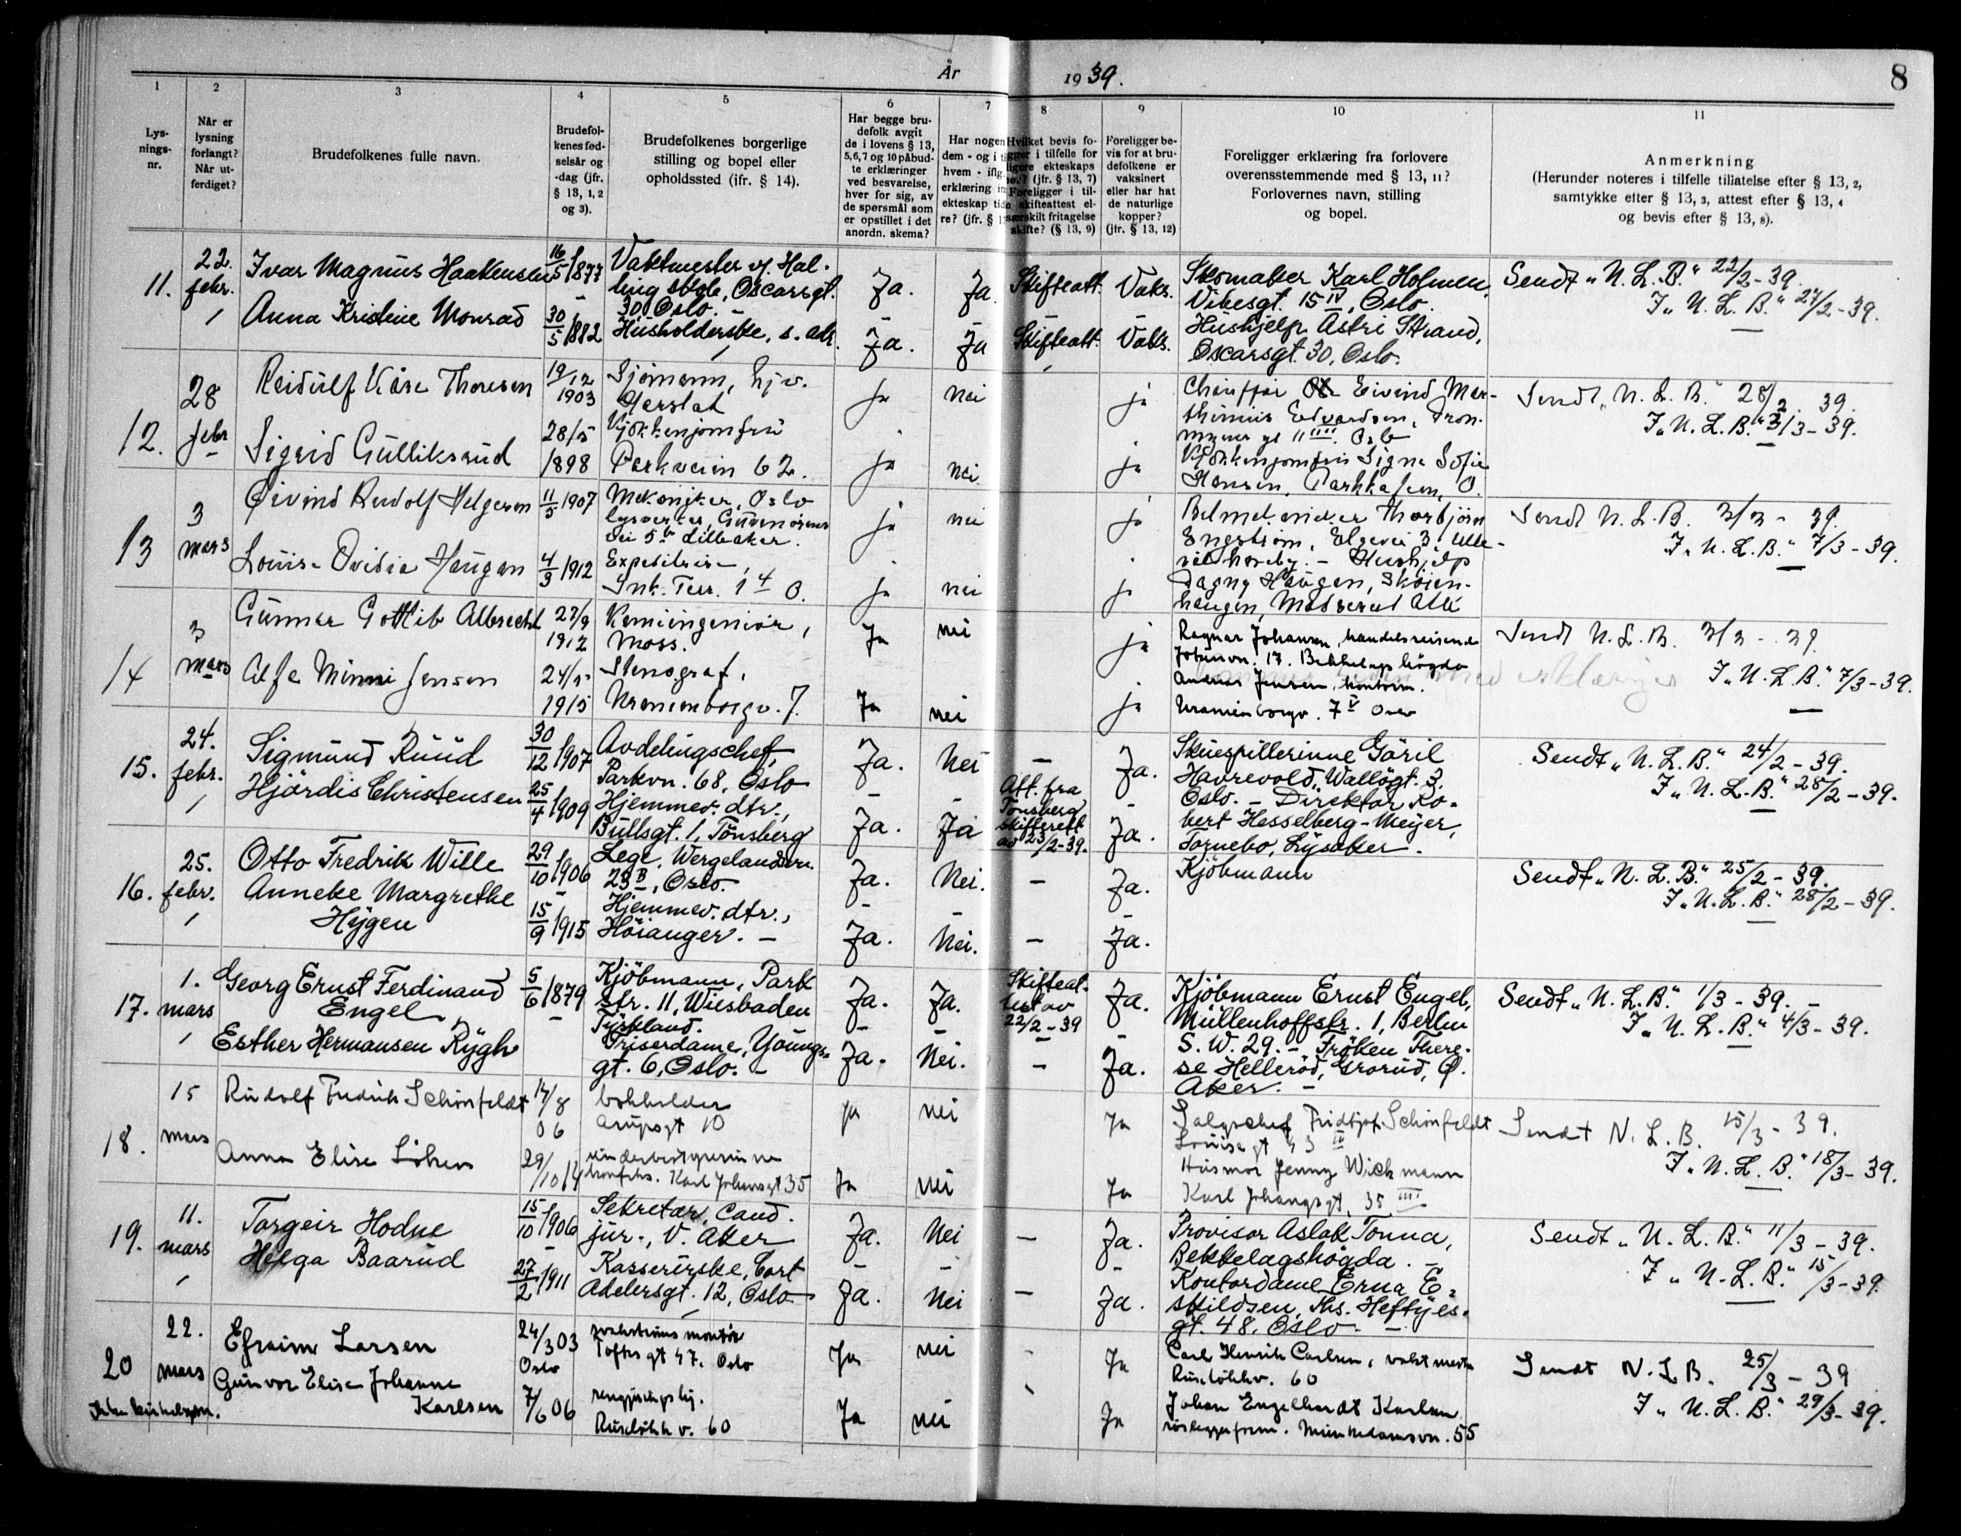 År 1939.
8
1 2 3 4 5 6 7 8 9 10 11
Lys-
nings-
nr.
Når er
lysning
forlangt?
Når ut-
ferdiget?
Brudefolkenes fulle navn.
Brudefol-
kenes fød-
selsår og
-dag (jfr.
§ 13, 1, 2
og 3).
Brudefolkenes borgerlige
stilling og bopel eller
opholdssted (ifr. § 14).
Har begge bru-
defolk avgit
de i lovens § 13,
5, 6, 7 og 10 påbud-
te erklæringer
ved besvarelse,
hver for sig, av
de spørsmål som
er opstillet i det
anordn. skema?
Har nogen
dem - og i
hvem - iflg.
erklæring in
ekteskap tid
re? (jfr. § 1
Hvilket bevis fo-
ligger i tilfelle for
tidligere ekteskaps
(jfr. § 13, 7)
Foreligger i til-
skifteattest el-
særskilt fritagelse
skifte? (§ 13, 9)
Foreligger be-
vis for at bru-
defolkene er
vaksinert
eller har hat
de naturlige
kopper?
(jfr. § 13, 12)
Foreligger erklæring fra forlovere
overensstemmende med § 13, 11?
Forlovernes navn, stilling
og bopel.
Anmerkning
(Herunder noteres i tilfelle tillatelse efter § 13, 2,
samtykke efter § 13, 3, attest efter § 13, 4
og bevis efter § 13, 8).
11.
22.
febr.
Ivar Magnus Haakensen
Anna Kristine Monrad
16/5 1877
30/5 1882
Vaktmester v. Hal-
ling skole, Oscarsgt.
30, Oslo. -
Husholderske, s. adr.
Ja. Ja. Skifteatt. Vaks.
Ja. Ja Skifteatt. Vaks.
Skomaker Karl Holmen,
Vibesgt. 15 IV, Oslo.
Hushjelp Astri Strand,
Oscarsgt. 30, Oslo.
Sendt „N. L. B." 22/2-39.
I „N. L. B." 27/2-39.
12.
28
febr
Reidulf Kåre Thoresen
Sigrid Gulliksrud
19/12
1903
28/5
1898
Sjömann, hjv.
Gerstad
Kjökkenjomfru
Parkveien 62.
ja nei ja
ja nei. ja
Chauffør Eivind Mar-
thinius Edvardsen, Dron-
Kjökkenjomfru Signe Sofie
Hansen, O.
Sendt „N. L. B." 28/2. 39.
I „N. L. B." 3/3-39.
13
3
mars
Øivind Rudolf Helgesen
Louise Ovidia Haugen
11/5 1907
4/3 1912
Mekaniker, Oslo
lysverker,
vei 5b Lilleaker.
Expeditrise,
Ink. Terr. 1 4 O.
ja nei ja
ja nei ja
Thorbjörn
Engström, Elgevei 3, Ulle-
vål haveby. - Hushjelp
Dagny Haugen, Skøien-
haugen,
Sendt N. L. B. 3/3 - 39.
I „N. L. B." 7/3-39.
14
3
mars
Gunnar Gottlib Albrecht
Minni Jensen
27/9
1912
24/5
1915
Kemiingeniör,
Moss.
Stenograf,
Uranienborgv. 7.
Ja nei ja
Ja nei ja
Ragnar Johansen, handelsreisende
17. Bekkelagshögda
Andreas Jensen, kontorm.
Uranienborgv. 7 V Oslo
Sendt N. L. B. 3/3 - 39.
I „N. L. B." 7/3-39.
15.
24.
febr.
Sigmund Ruud
Hjördis Christensen
30/12 1907
25/4 1909
Avdelingschef,
Parkvn. 68, Oslo
Hjemmev. dtr.,
Bullsgt. 1, Tönsberg
Ja. Nei - Ja.
Ja. Ja
Att. fra
Tönsberg
skifterett
av 23/2-39.
Ja.
Skuespillerinne Göril
Havrevold, Wallögt. 3,
Oslo. - Direktör Ro-
bert Hesselberg-Meyer,
Fornebo, Lysaker.
Sendt „N. L. B." 24/2-39.
I „N. L. B." 28/2-39.
16.
25.
febr.
Otto Fredrik Wille
Anneke Margrethe
Hygen
29/10 1906
15/9 1915
Lege, Wergelandsvn.
23B, Oslo.
Hjemmev. dtr.,
Höianger. -
Ja. Nei. - Ja.
Ja. Nei. - Ja.
Kjöbmann
Sendt „N. L. B." 25/2-39.
I „N. L. B." 28/2-39.
17.
1.
mars
Georg Ernst Ferdinand
Engel
Esther Hermansen Rygh
5/6 1879
Kjöbmann, Park
str. 11, Wiesbaden
Tyskland.
Friserdame, Youngs-
gt. 6, Oslo. -
Ja. Ja.
Skifteat-
test av
22/2-39
Ja.
Ja. Nei. - Ja.
Kjöbmann Ernst Engel,
Müllenhoffstr. 1, Berlin
S. W. 29. - Fröken There-
se Helleröd, Grorud, Ø.
Aker. -
Sendt „N. L. B." 1/3-39. -
I „N. L. B." 4/3-39.
18.
15
mars
Rudolf Fredrik Schönfeldt
Anna Elise Löken
14/8
06
29/10 14
bokholder
Arupsgt 10
Karl Johansgt 35
ja nei Ja
Ja nei Ja
Salgschef Fridtjof Schönfeldt
Louisegt 43 IV
Husmor Jenny Wichmann
Karl Johansgt. 35 IIII
Sendt N. L. B. 15/3-39.
I „N. L. B." 18/3-39.
19.
11.
mars
Torgeir Hodne
Helga Baarud
15/10 1906
27/2 1911
Sekretær, Cand.
jur., V. Aker
Kassererske, Cort
Adelersgt. 12, Oslo
Ja. Nei - Ja.
Ja. Nei - Ja.
Provisor Aslak Tonna,
Bekkelagshögda. -
Kontordame Erna E-
skildsen, Ths. Heftyes-
gt. 48, Oslo. -
Sendt „N. L. B." 11/3-39.
I „N. L. B." 15/3-39.
20
22.
mars
Efraim Larsen
Gunvor Elise Johanne
Karlsen
24/3 03
Oslo
7/6 06
montör
Toftesgt 47. Oslo
rengjöringshj.
Ruselökkv. 60
Ja nei Ja
Ja nei Ja
Carl Henrik Carlsen, vaktmester
Ruselökkv. 60
Johan Engelhardt Karlsen
Munkedamsvn. 55
Sendt N. L. B. 25/3 - 39
I „N. L. B." 29/3-39.